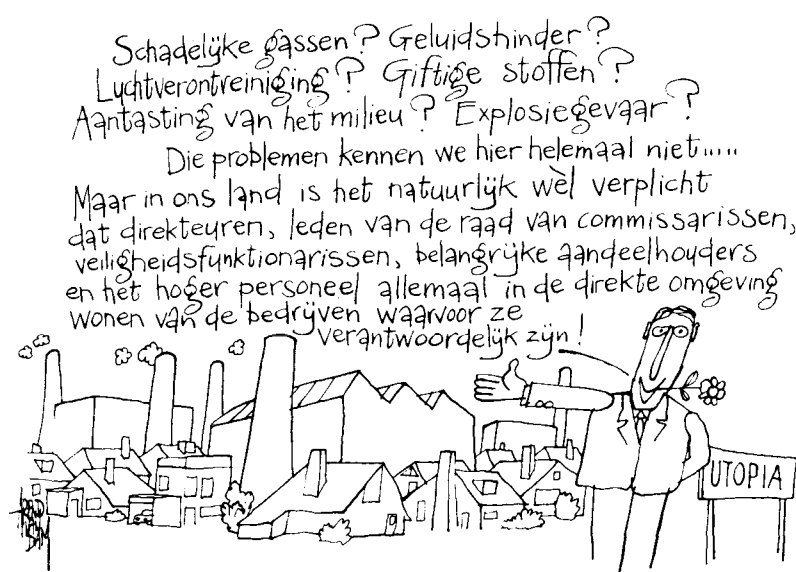 Schadelijke gassen? Geluidshinder?
Luchtverontreiniging? Giftige stoffen?
Aantasting van het milieu? Explosiegevaar?
Die problemen kennen we hier helemaal niet.....
Maar in ons land is het natuurlijk wèl verplicht
dat direkteuren, leden van de raad van commissarissen,
veiligheidsfunktionarissen, belangrijke aandeelhouders
en het hoger personeel allemaal in de direkte omgeving
wonen van de bedrijven waarvoor ze
verantwoordelijk zijn!
UTOPIA